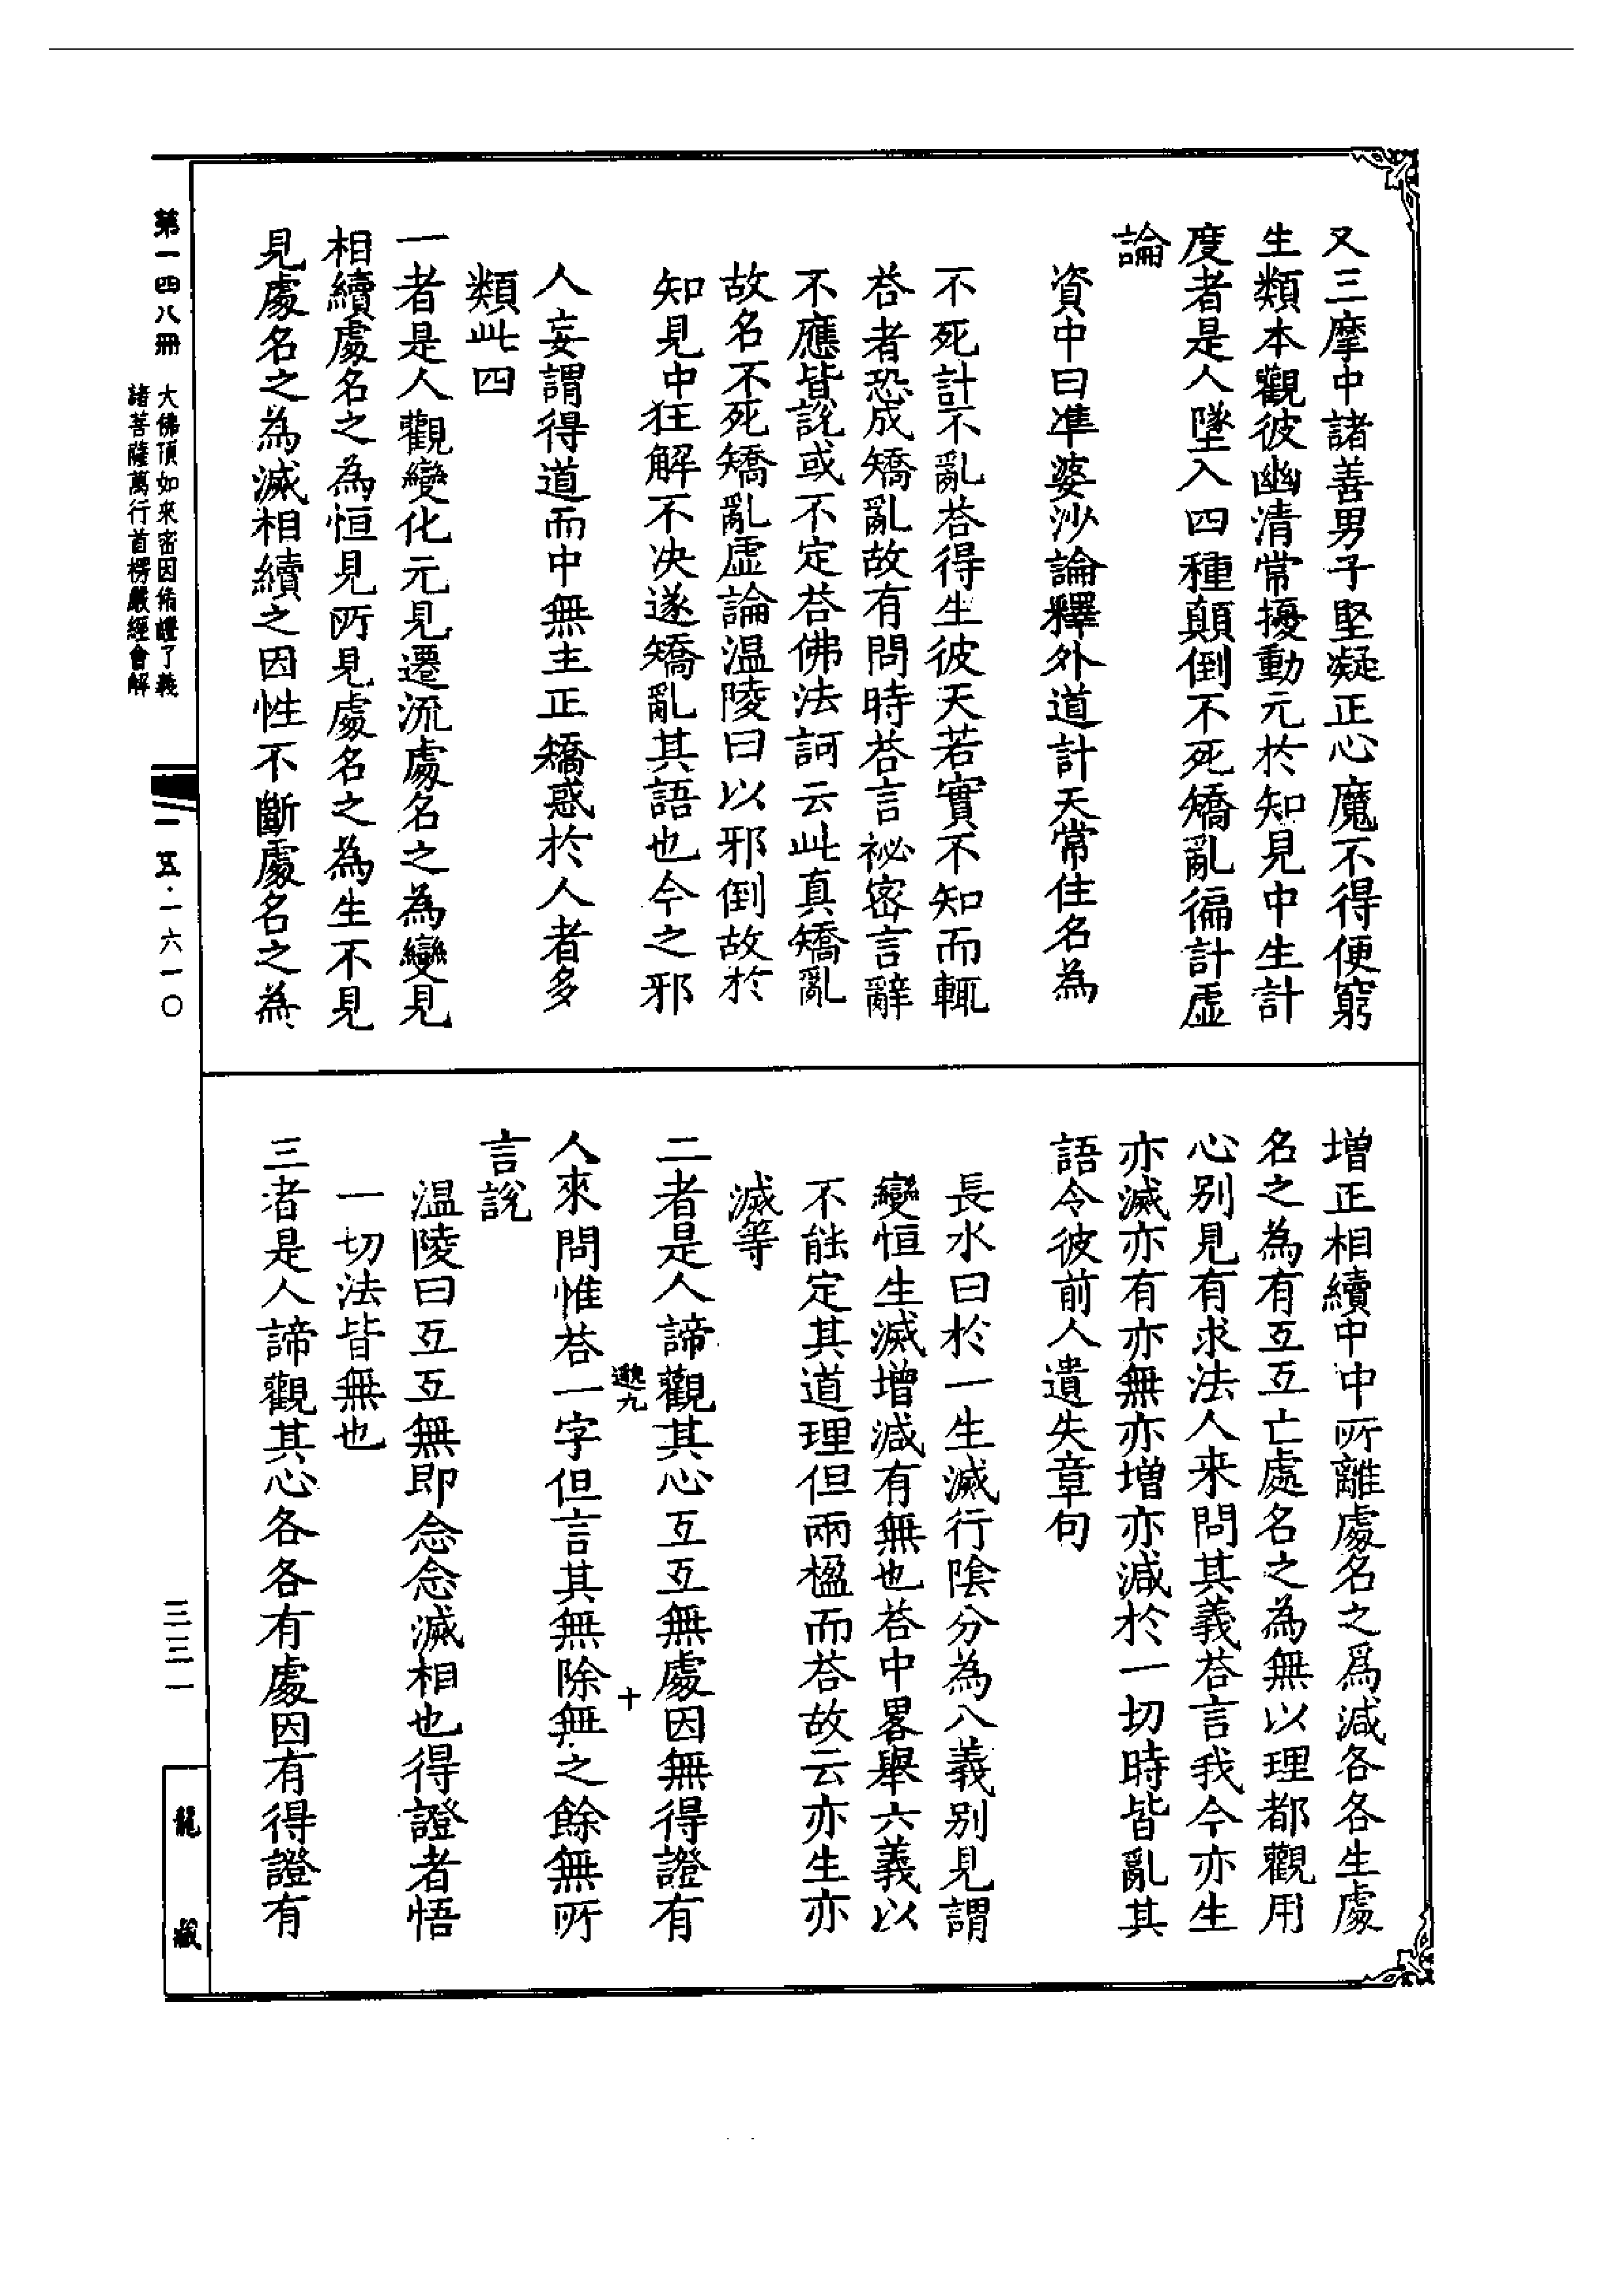 又三摩中諸善男子堅凝正心魔不得便窮
生類本觀彼幽清常擾動元於知見中生計
度者是人墜入四種顛倒不死矯亂徧計虛
論
資中曰準婆沙論釋外道計天常住名為
不死計不亂荅得生彼天若實不知而輒
荅者恐成矯亂故有問時荅言祕密言辭
不應皆說或不定荅佛法訶云此真矯亂
故名不死矯亂虛論溫陵曰以邪倒故於
知見中狂解不決遂矯亂其語也今之邪
人妄謂得道而中無主正矯惑於人者多
類此四
一者是人觀變化元見遷流處名之為變見
相續處名之為恒見所見處名之為生不見
見處名之為滅相續之因性不斷處名之為
增正相續中中所離處名之爲減各各生處
名之為有互互亡處名之為無以理都觀用
心別見有求法人来問其義荅言我今亦生
亦滅亦有亦無亦增亦減於一切時皆亂其
語令彼前人遺失章句
長水曰於一生滅行陰分為八義別見謂
變恒生滅增減有無也荅中畧舉六義以
不能定其道理但兩楹而荅故云亦生亦
滅等
二者是人諦觀其心互互無處因無得證有
邈九
十
人來問惟荅一字但言其無除無之餘無所
言說
溫陵曰互互無即念念滅相也得證者悟
一切法皆無也
三者是人諦觀其心各各有處因有得證有
第一四八冊
大佛頂如來密因脩證了義
諸菩薩萬行首楞嚴經會解
一五·一六一〇
三三一
龍藏